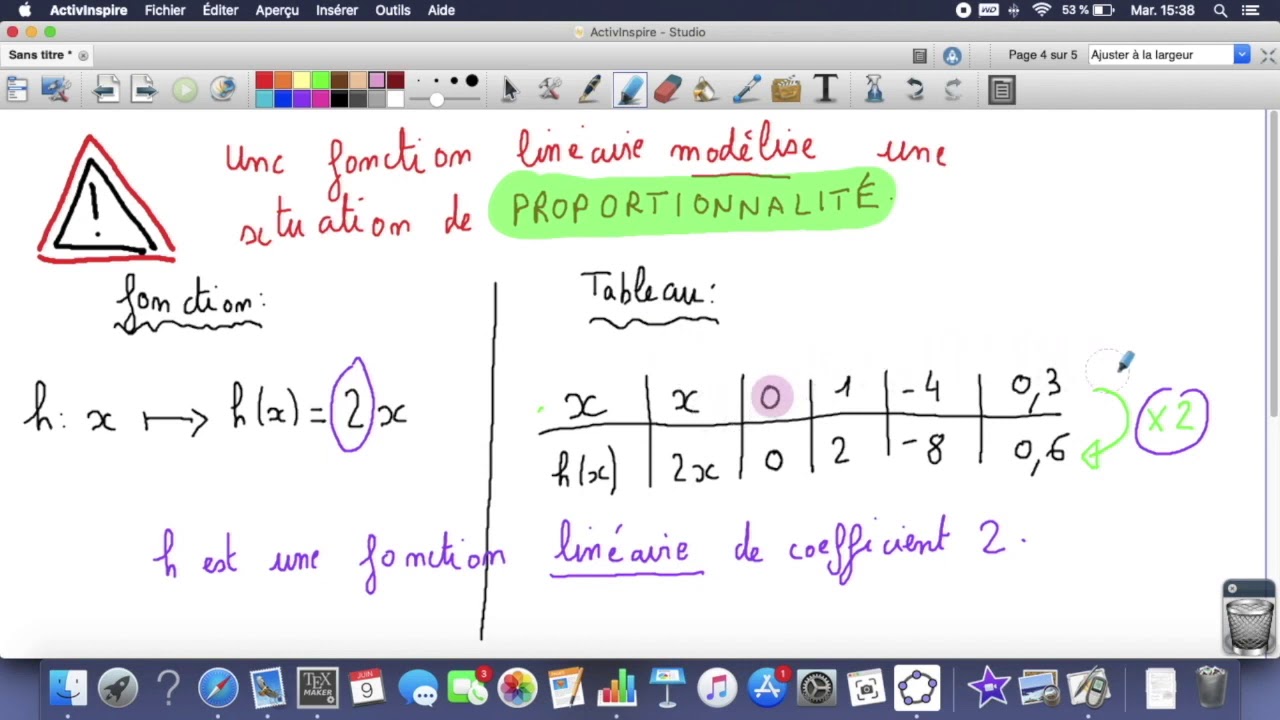 ActivInspire Fichier Éditer Aperçu Insérer Outils Aide WD 53 % Mar. 15:38
ActivInspire - Studio
Sans titre * Page 4 sur 5 Ajuster à la largeur
T
! Une fonction linéaire modélise une
situation de PROPORTIONNALITÉ.
fonction:
Tableau:
h: x ⟼ h(x) = 2x
x | x | 0 | 1 | -4 | 0,3
h(x) | 2x | 0 | 2 | -8 | 0,6
x 2
h est une fonction linéaire de coefficient 2.
TEX MAKER JUIN 9 3 1